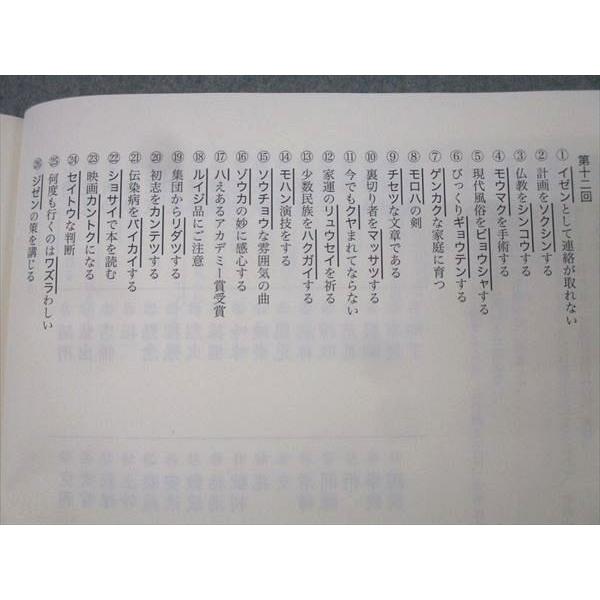 第十二回
①イゼンとして連絡が取れない
②計画をソクシンする
③仏教をシンコウする
④モウマクを手術する
⑤現代風俗をビョウシャする
⑥びっくりギョウテンする
⑦ゲンカクな家庭に育つ
⑧モロハの剣
⑨チセツな文章である
⑩裏切り者をマッサツする
⑪今でもクヤまれてならない
⑫家運のリュウセイを祈る
⑬少数民族をハクガイする
⑭モハン演技をする
⑮ソウチョウな雰囲気の曲
⑯ゾウカの妙に感心する
⑰ハえあるアカデミー賞受賞
⑱ルイジ品にご注意
⑲集団からリダツする
⑳初志をカンテツする
㉑伝染病をバイカイする
㉒ショサイで本を読む
㉓映画カントクになる
㉔セイトウな判断
㉕何度も行くのはワズラわしい
㉖ジゼンの策を講じる